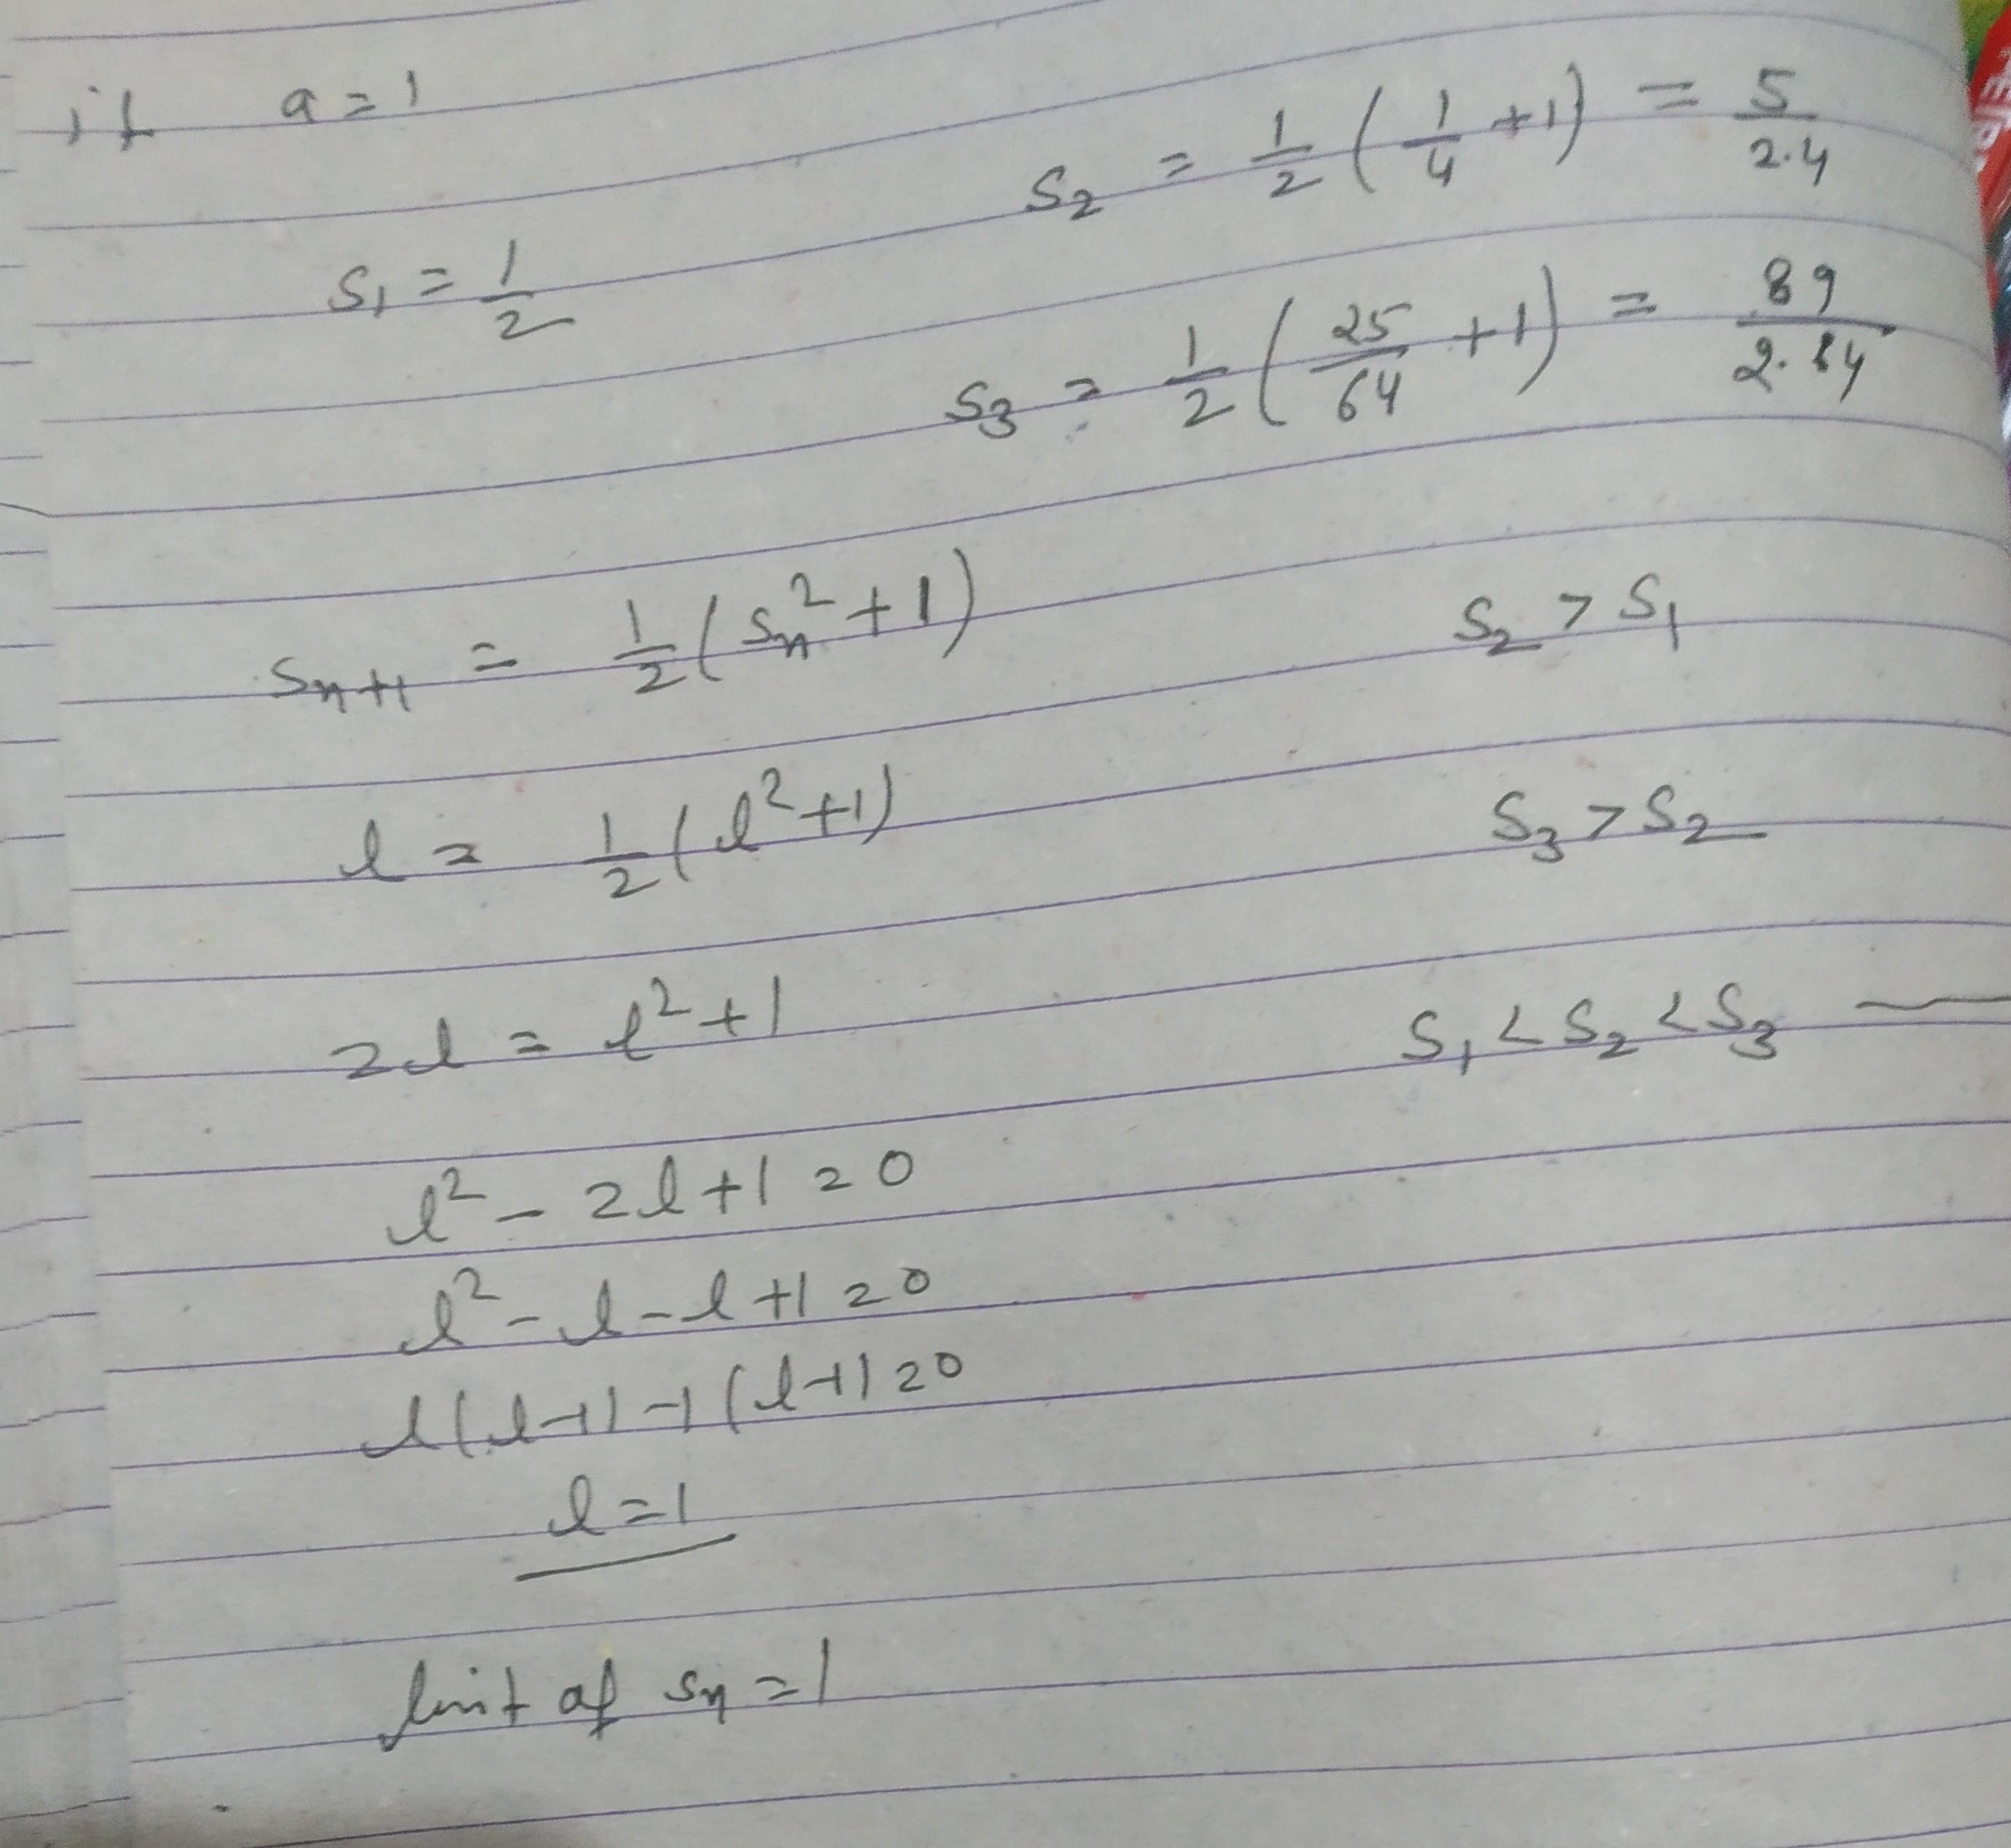 if a = 1
s₁ = 1/2
s₂ = 1/2 (1/4 + 1) = 5/2.4
s₃ = 1/2 (25/64 + 1) = 89/2.64
sₙ₊₁ = 1/2 (sₙ² + 1)
s₂ > s₁
l = 1/2 (l² + 1)
s₃ > s₂
2l = l² + 1
s₁ < s₂ < s₃ —
l² - 2l + 1 = 0
l² - l - l + 1 = 0
l(l-1) -1(l-1) = 0
l = 1
limit of sₙ = 1